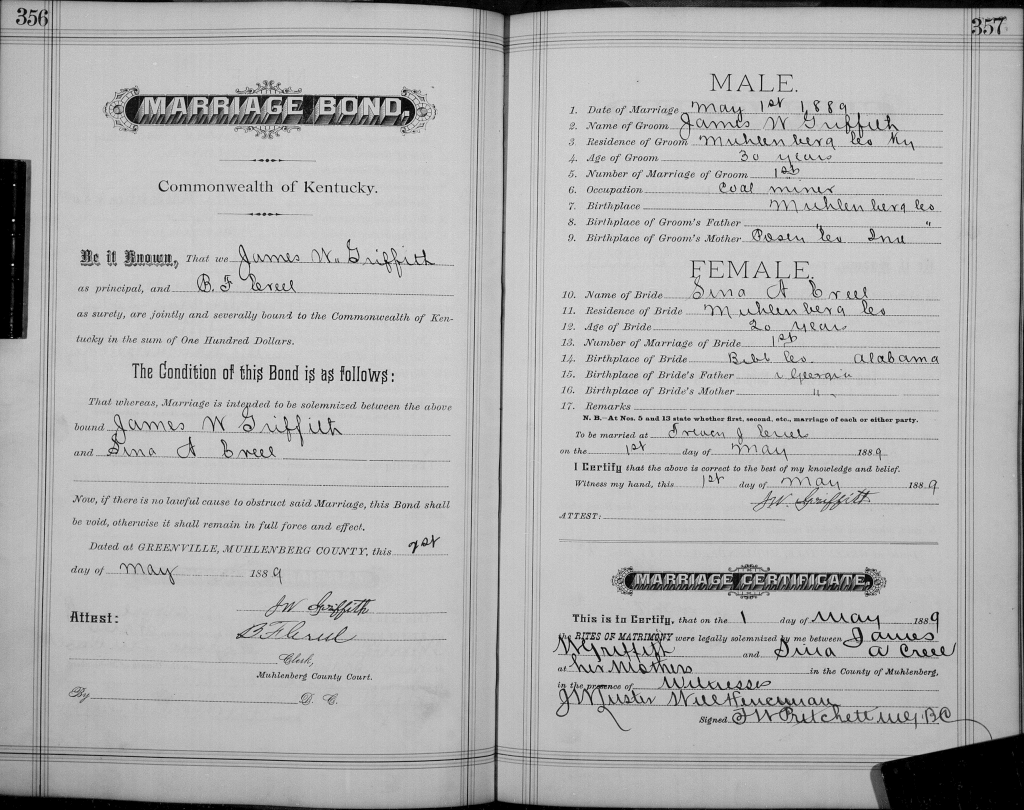 356
MARRIAGE BOND,
Commonwealth of Kentucky.
Be it Known, That we James W. Griffith
as principal, and B. F Creel
as surety, are jointly and severally bound to the Commonwealth of Ken-
tucky in the sum of One Hundred Dollars.
The Condition of this Bond is as follows:
That whereas, Marriage is intended to be solemnized between the above
bound James W Griffith
and Sina A Creel
Now, if there is no lawful cause to obstruct said Marriage, this Bond shall
be void, otherwise it shall remain in full force and effect.
Dated at GREENVILLE, MUHLENBERG COUNTY, this 1st
day of May 1889
JW Griffith
Attest: B F Creel
Clerk,
Muhlenberg County Court.
By D. C.
357
MALE.
1. Date of Marriage May 1st 1889
2. Name of Groom James W Griffith
3. Residence of Groom Muhlenberg Co Ky
4. Age of Groom 30 years
5. Number of Marriage of Groom 1st
6. Occupation Coal miner
7. Birthplace Muhlenberg Co
8. Birthplace of Groom's Father "
9. Birthplace of Groom's Mother Posey Co Ind
FEMALE.
10. Name of Bride Sina A Creel
11. Residence of Bride Muhlenberg Co
12. Age of Bride 20 years
13. Number of Marriage of Bride 1st
14. Birthplace of Bride Bibb Co. Alabama
15. Birthplace of Bride's Father Georgia
16. Birthplace of Bride's Mother "
17. Remarks
N. B.—At Nos. 5 and 13 state whether first, second, etc., marriage of each or either party.
To be married at J Creel
on the 1st day of May 1889
I Certify that the above is correct to the best of my knowledge and belief.
Witness my hand, this 1st day of May 1889
JW. Griffith
ATTEST:
MARRIAGE CERTIFICATE.
This is to Certify, that on the 1 day of May 1889
the RITES OF MATRIMONY were legally solemnized by me between James
W Griffith and Sina A Creel
at her Mothers in the County of Muhlenberg,
in the presence of Witnesses
J W Luster Will
Signed, J W Pritchett